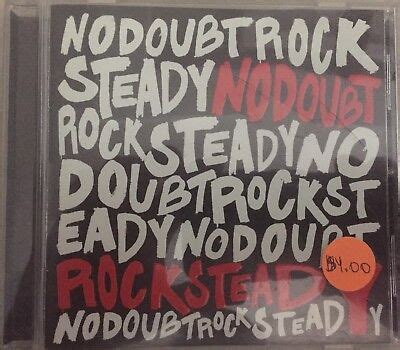 NODOUBTROCK
STEADYNODOUBT
ROCKSTEADYNO
DOUBTROCKST
EADYNODOUBT
ROCKSTEADY
NODOUBTROCKSTEADY
$4.00